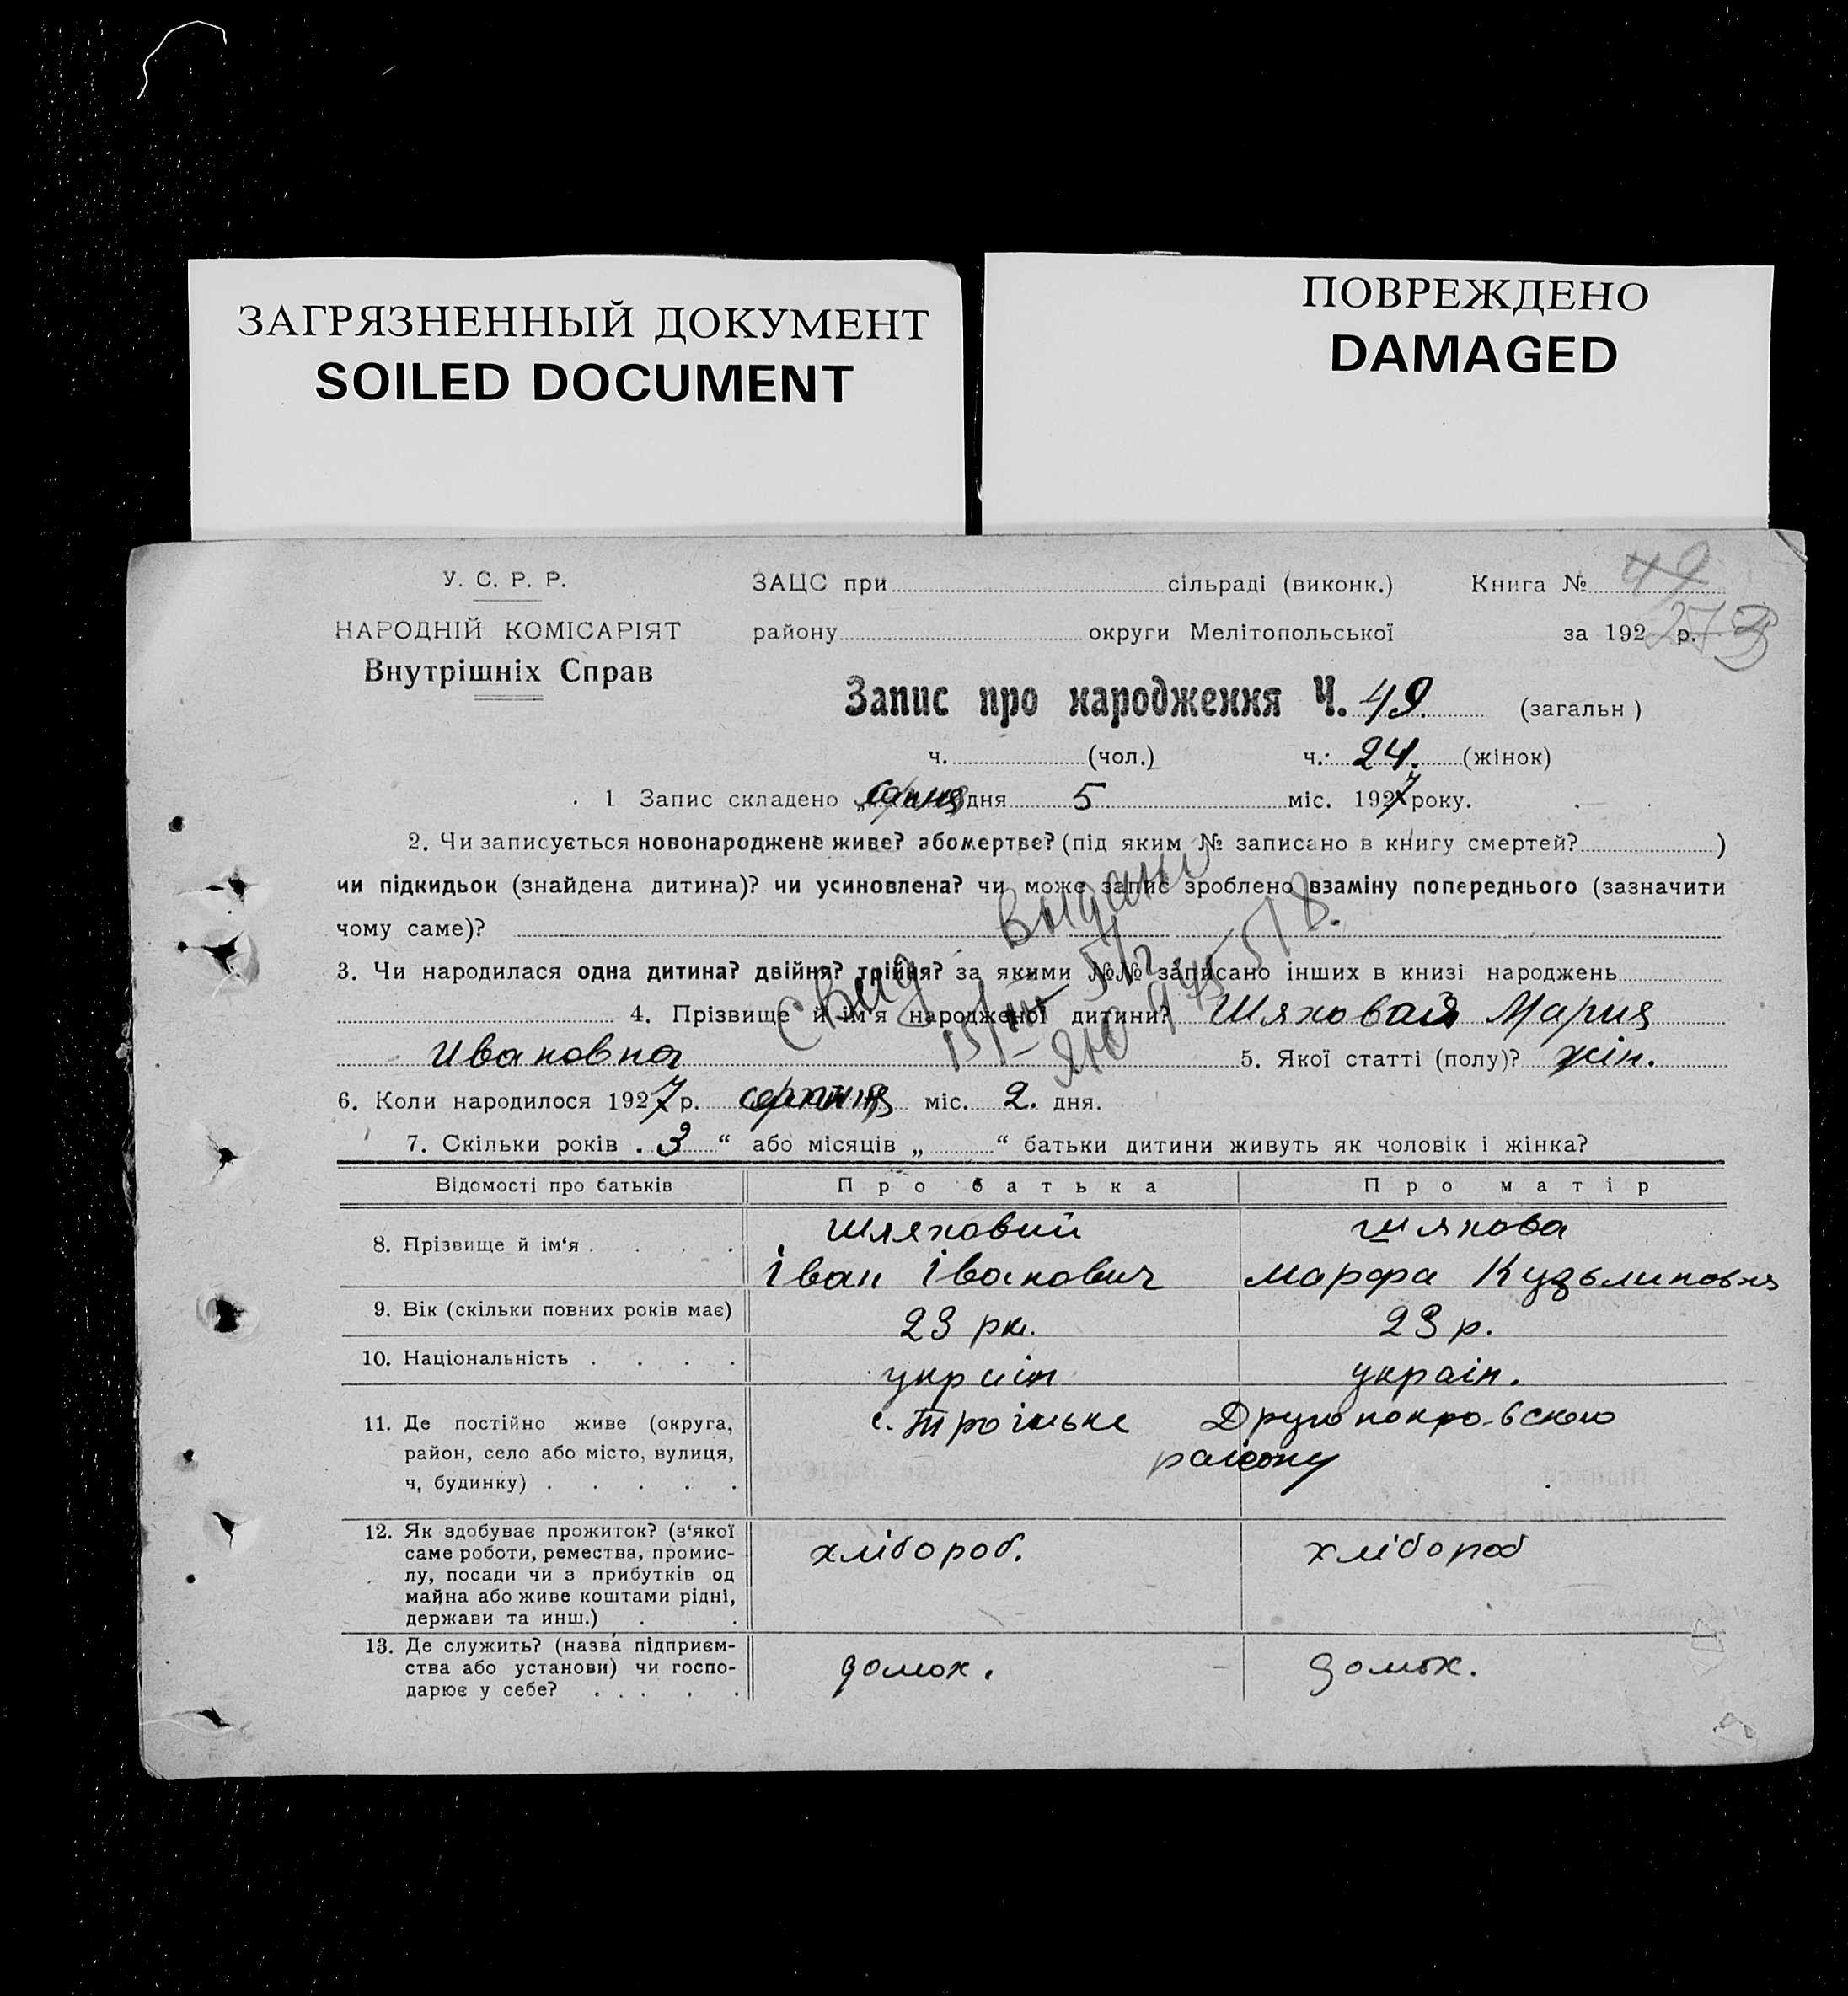 ЗАГРЯЗНЕННЫЙ ДОКУМЕНТ
SOILED DOCUMENT
ПОВРЕЖДЕНО
DAMAGED
У. С. Р. Р.
НАРОДНІЙ КОМІСАРІЯТ
Внутрішніх Справ
ЗАЦС при сільраді (виконк.) Книга № 49
району округи Мелітопольської за 192 р. 273
Запис про народження Ч. 49. (загальн)
ч. (чол.) ч. 24. (жінок)
1 Запис складено „серпня дня 5 міс. 1927 року.
2. Чи записується новонароджене живе? або мертве? (під яким № записано в книгу смертей? )
чи підкидьок (знайдена дитина)? чи усиновлена? чи може запис зроблено взаміну попереднього (зазначити
чому саме)?
Свид Выдано
3. Чи народилася одна дитина? двійня? трійня? за якими №№ записано інших в книзі народжень
4. Прізвище й ім'я народженої дитини? Шляховая Мария
Ивановна 5. Якої статті (полу)? жін.
6. Коли народилося 1927 р. серпня міс. 2. дня.
7. Скільки років „ 3 “ або місяців „ “ батьки дитини живуть як чоловік і жінка?
Відомості про батьків Про батька Про матір
8. Прізвище й ім'я . . . . Шляховий Шляхова
Іван Іванович Марфа Кузьминовня
9. Вік (скільки повних років має) 23 рк. 23 р.
10. Національність . . . . україн україн.
11. Де постійно живе (округа, с. Троїцьке Другопокровського
район, село або місто, вулиця, району
ч, будинку) . . . . .
12. Як здобуває прожиток? (з'якої хлібороб. хлібороб
саме роботи, ремества, промис-
лу, посади чи з прибутків од
майна або живе коштами рідні,
держави та инш.) . .
13. Де служить? (назва підприєм- домох. домох.
ства або установи) чи госпо-
дарює у себе? . . . . .